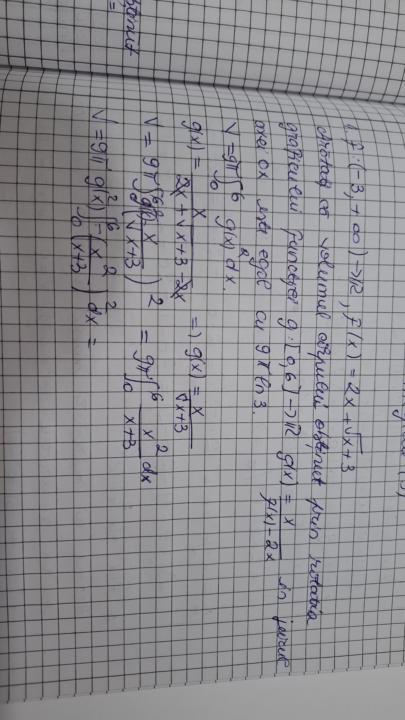 1. f:(-3,+∞)→ℝ, f(x) = 2x+√x+3
arătați că volumul corpului obținut prin rotația
graficului funcției g:[0,6]→ℝ g(x) = x/f(x)-2x în jurul
axei ox este egal cu 9π ln3.
V=9π∫₀⁶ g(x)²dx.
g(x) = x/2x+√x+3-2x => g(x) = x/√x+3
V = 9π∫₀⁶ (x/√x+3)² = 9π∫₀⁶ x²/x+3 dx
V=9π g(x)²